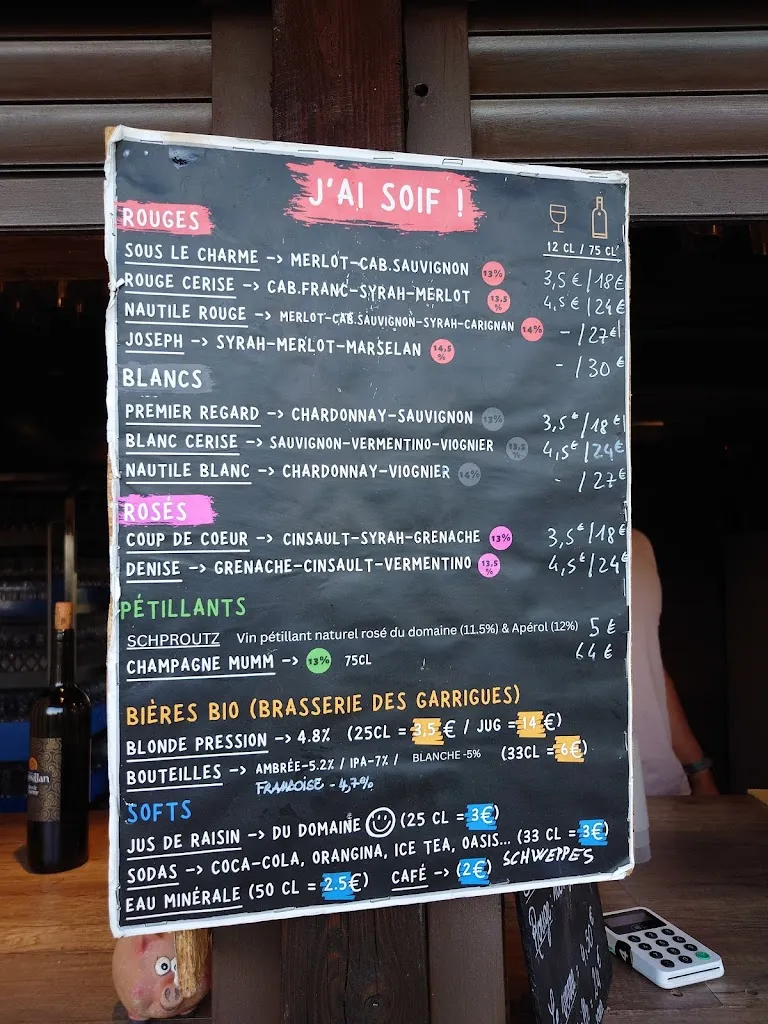 J'AI SOIF !
ROUGES
12 CL / 75 CL
SOUS LE CHARME -> MERLOT-CAB.SAUVIGNON 13% 3,5€/18€
ROUGE CERISE -> CAB.FRANC-SYRAH-MERLOT 13,5% 4,5€/24€
NAUTILE ROUGE -> MERLOT-CAB.SAUVIGNON-SYRAH-CARIGNAN 14% - /27€
JOSEPH -> SYRAH-MERLOT-MARSELAN 14,5% - /30€
BLANCS
PREMIER REGARD -> CHARDONNAY-SAUVIGNON 13% 3,5€/18€
BLANC CERISE -> SAUVIGNON-VERMENTINO-VIOGNIER 13,5% 4,5€/24€
NAUTILE BLANC -> CHARDONNAY-VIOGNIER 14% - /27€
ROSÉS
COUP DE COEUR -> CINSAULT-SYRAH-GRENACHE 13% 3,5€/18€
DENISE -> GRENACHE-CINSAULT-VERMENTINO 13,5% 4,5€/24€
PÉTILLANTS
SCHPROUTZ Vin pétillant naturel rosé du domaine (11.5%) & Apérol (12%) 5€
CHAMPAGNE MUMM -> 13% 75CL 64€
BIÈRES BIO (BRASSERIE DES GARRIGUES)
BLONDE PRESSION -> 4.8% (25CL = 3,5€ / JUG = 14€)
BOUTEILLES -> AMBRÉE-5.2% / IPA-7% / BLANCHE -5% (33CL = 6€)
FRAMBOISE - 4,7%
SOFTS
JUS DE RAISIN -> DU DOMAINE (25 CL = 3€)
SODAS -> COCA-COLA, ORANGINA, ICE TEA, OASIS... (33 CL = 3€)
SCHWEPPES
EAU MINÉRALE (50 CL = 2.5€) CAFÉ -> (2€)